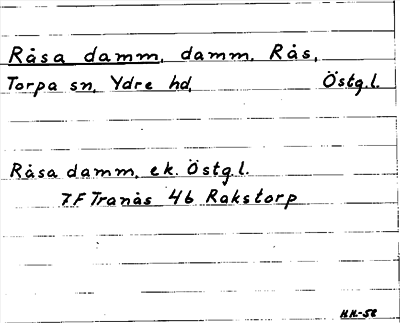 Råsa damm, damm, Rås,
Torpa sn, Ydre hd, Östg.l.
Råsa damm, ek. Östg.l.
7F Tranås 4b Rakstorp
H.H.-58